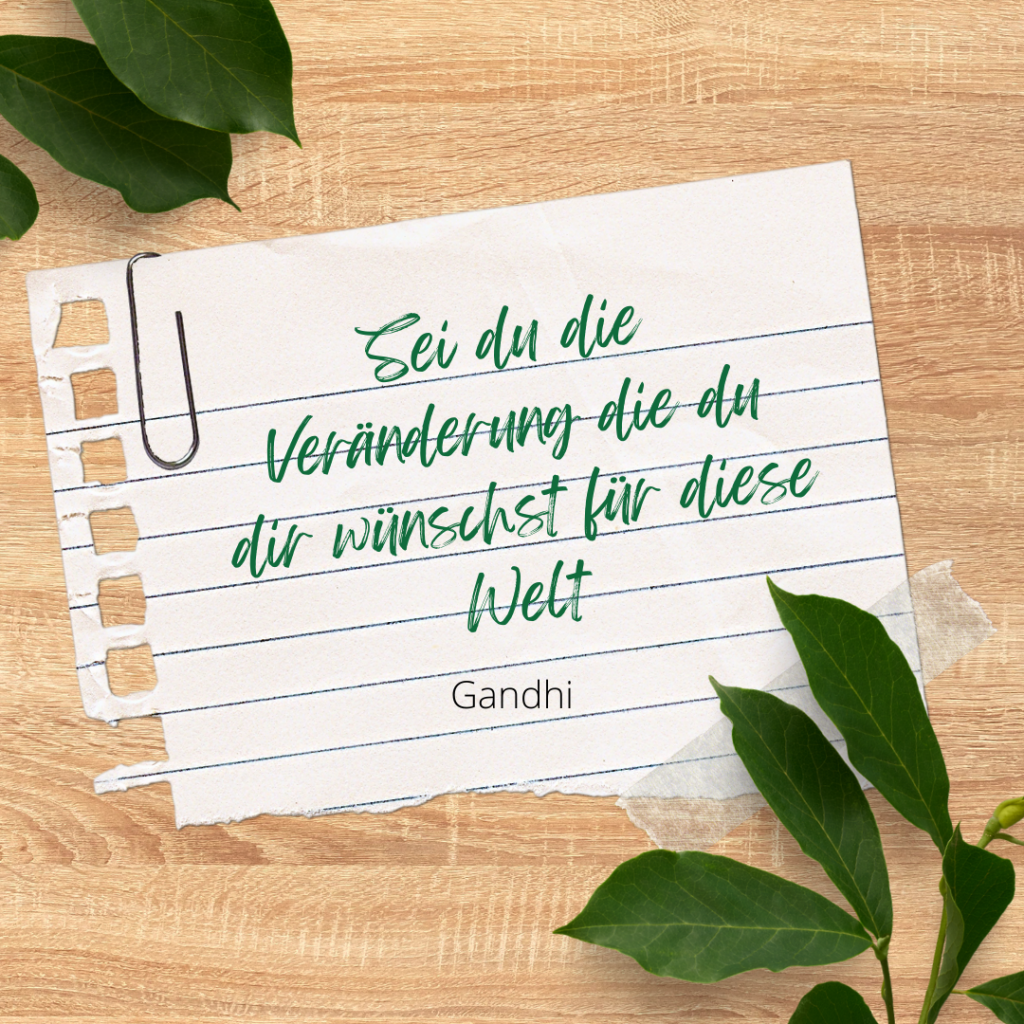 Sei du die
Veränderung die du
dir wünschst für diese
Welt
Gandhi